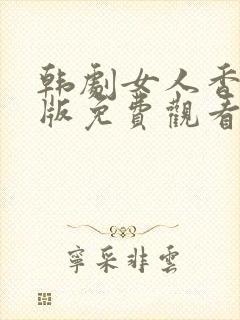 韩劇女人香
版免費觀看
寧采非雲